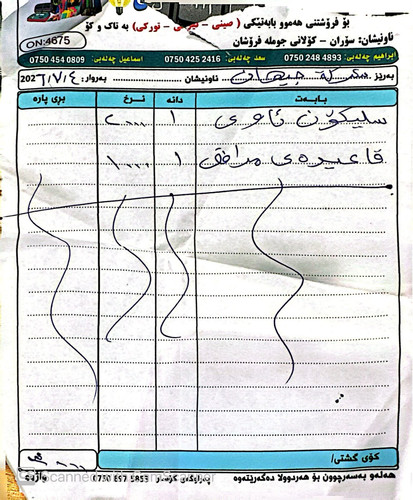 بۆ فرۆشتنی هەموو بابەتێکی ( صینی - - تورکی) بە تاک و کۆ
ناونیشان: سۆران - کۆلانی جوملە فرۆشان
ON:4675
ابراهیم چەلەبی: 0750 248 4893 سعد چەلەبی: 0750 425 2416 اسماعیل چەلەبی: 0750 454 0809
بەڕێز: ناونیشان بەروار: 202٦/٧/٤
بابەت دانە نرخ بڕی پارە
سلیکۆن ئاوی ١
قاعیدەی مرافق ١
کۆی گشتی/
هەڵەو بەسەرچوون بۆ هەردوولا دەگەڕێتەوە